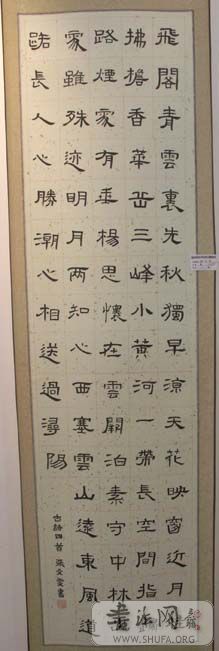 飛閣青雲裏先秋獨早涼天花映窗近月
拂擔香華岳三峰小黃河一帶長空間指
路煙處有垂楊思懷在雲闕泊素守中林
處雖殊迹明月兩知心西塞雲山遠東風道
路長人心勝潮心相送過潯陽
古詩四首 張文書
書法网
WWW.SHUFA.ORG